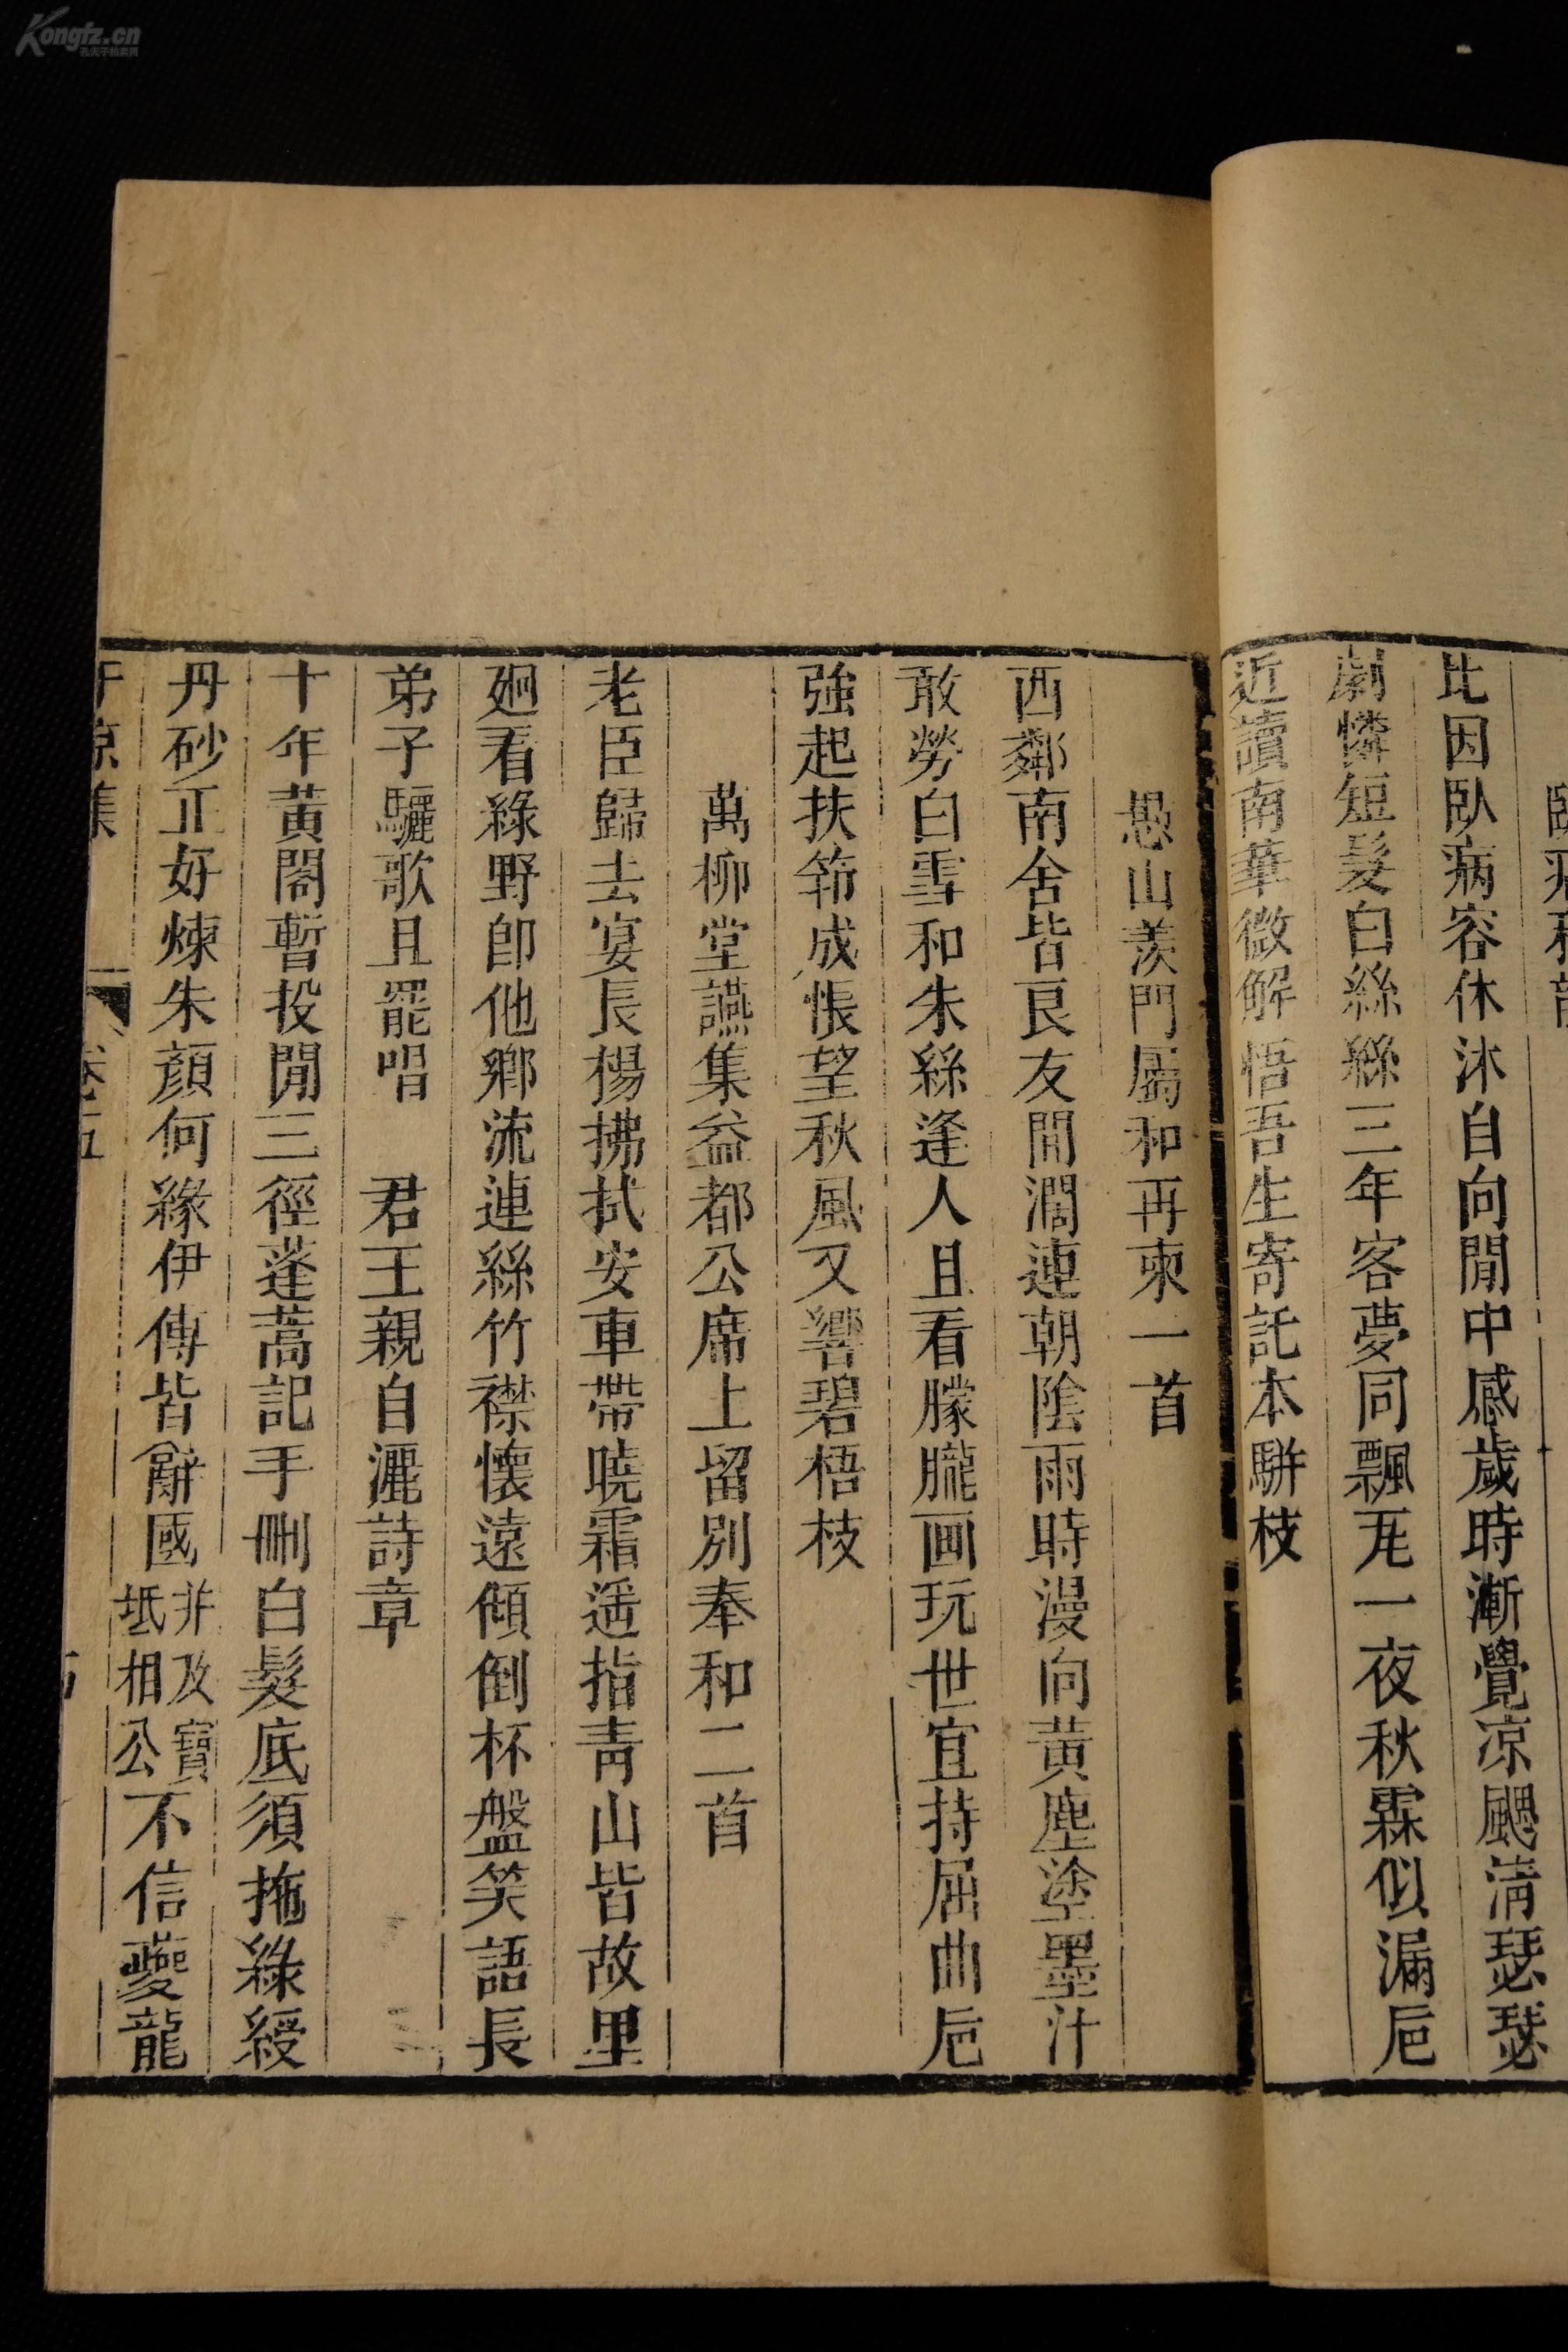 比因臥病容休沐自向閒中感歲時漸覺凉颸清瑟瑟
劇憐短髮白絲絲三年客夢同飄瓦一夜秋霖似漏卮
近讀南華微解悟吾生寄託本駢枝
愚山羨門屬和再柬一首
西鄰南舍皆良友間濶連朝陰雨時漫向黃塵塗墨汁
敢勞白雪和朱絲逢人且看朦朧画玩世宜持屈曲卮
強起扶筇成悵望秋風又響碧梧枝
萬柳堂讌集益都公席上留別奉和二首
老臣歸去宴長楊拂拭安車帶曉霜遥指靑山皆故里
廻看綠野卽他鄉流連絲竹襟懷遠傾倒杯盤笑語長
弟子驪歌且罷唱 君王親自灑詩章
十年黃閣暫投閒三徑蓬蒿記手刪白髮底須拖綠綬
丹砂正好煉朱顏何緣伊傅皆辭國非及寶坻相公不信夔龍
卷五
Kongfz.cn